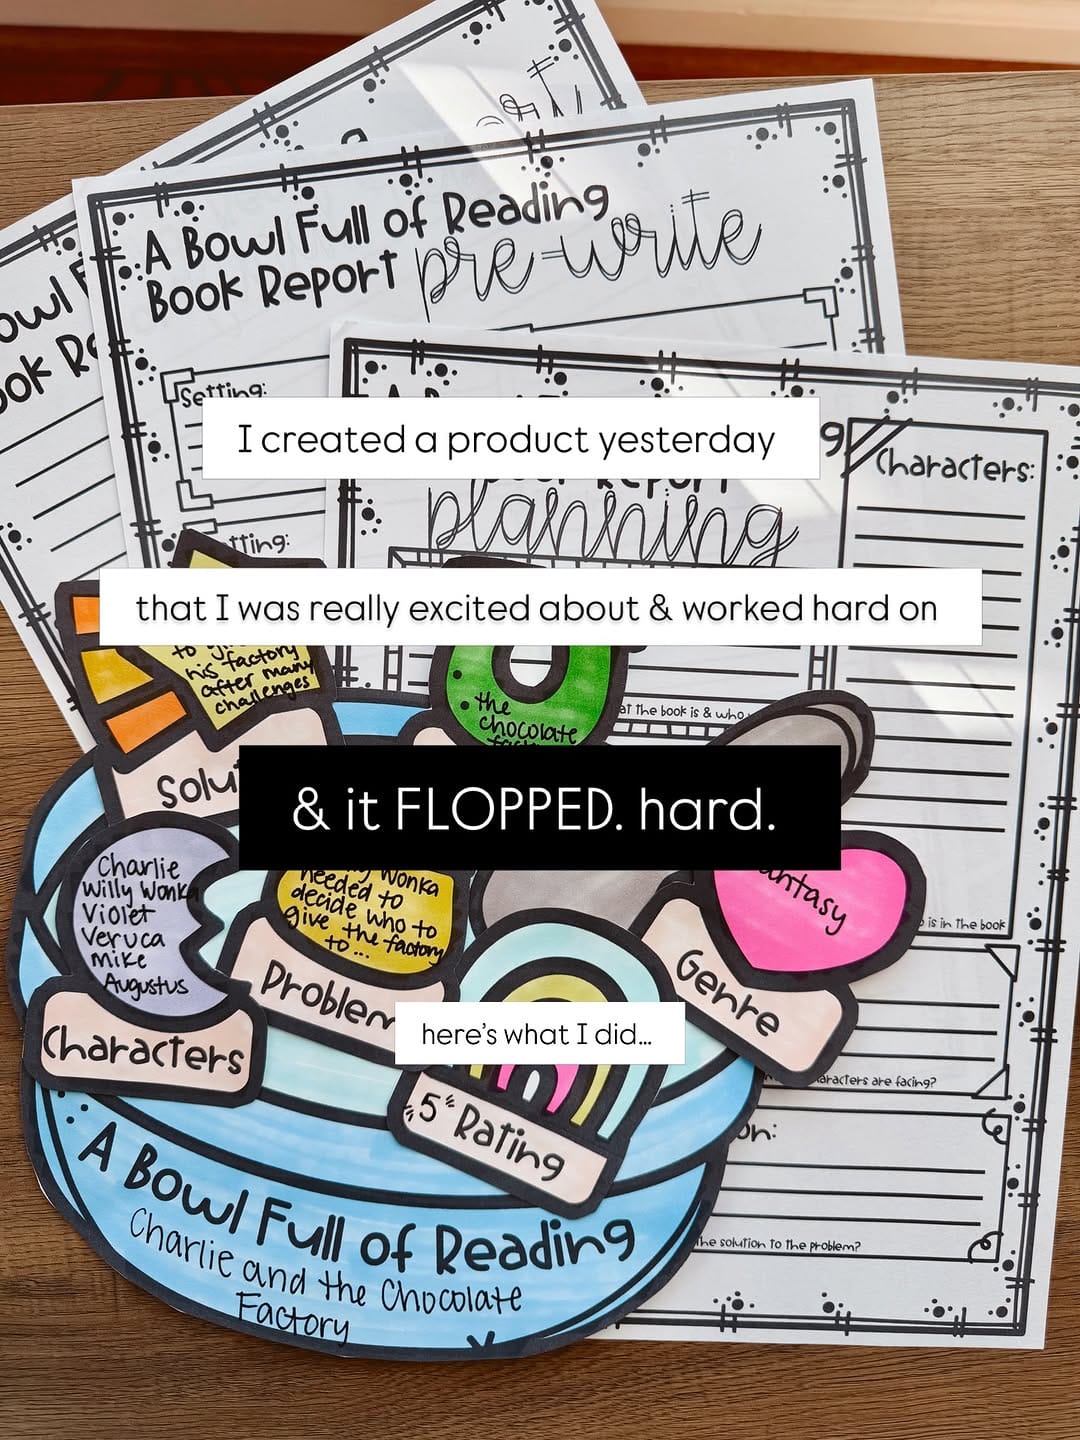 A Bowl Full of Reading
Book Report pre-write
Setting:
I created a product yesterday
Characters:
planning
that I was really excited about & worked hard on
his factory
after many
challenges
the
chocolate
at the book is & who
& it FLOPPED. hard.
Charlie
Willy Wonka
Violet
Veruca
Mike
Augustus
Characters
Wonka
needed to
decide who to
give the factory
to...
Problem
is in the book
Genre
here's what I did...
"5" Rating
characters are facing?
the solution to the problem?
A Bowl Full of Reading
Charlie and the Chocolate
Factory